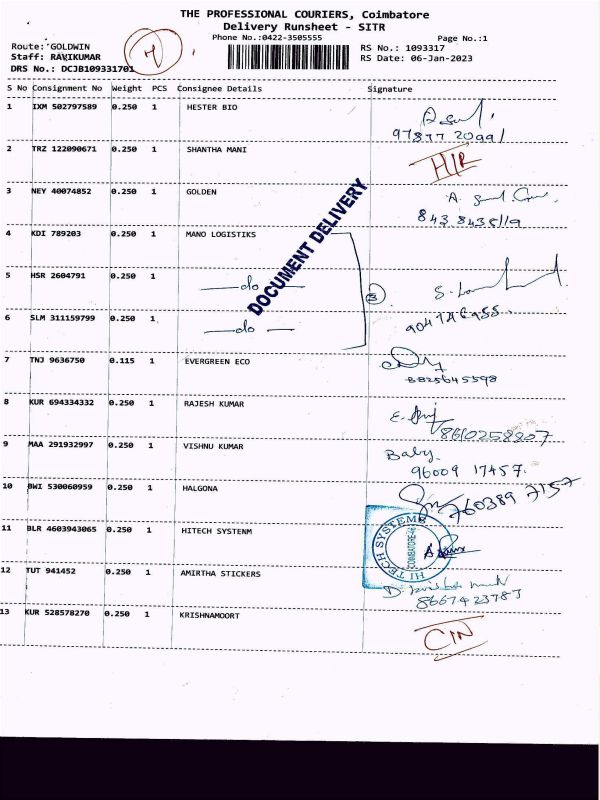 THE PROFESSIONAL COURIERS, Coimbatore
Delivery Runsheet - SITR
Phone No.:0422-3505555
Page No.:1
Route: GOLDWIN
RS No.: 1093317
Staff: RAVIKUMAR
RS Date: 06-Jan-2023
DRS No.: DCJB109331701
S No Consignment No Weight PCS Consignee Details Signature
1 IXM 502797589 0.250 1 HESTER BIO
2 TRZ 122090671 0.250 1 SHANTHA MANI
3 NEY 40074852 0.250 1 GOLDEN
8438438119
4 KDI 789203 0.250 1 MANO LOGISTIKS
DOCUMENT DELIVERY
5 HSR 2604791 0.250 1 —do—
3
6 SLM 311159799 0.250 1 —do—
7 TNJ 9636750 0.115 1 EVERGREEN ECO
8825645598
8 KUR 694334332 0.250 1 RAJESH KUMAR
8610258807
9 MAA 291932997 0.250 1 VISHNU KUMAR
Baby
96009 17457.
10 BWI 530060959 0.250 1 HALGONA
760389 7157
11 BLR 4603943065 0.250 1 HITECH SYSTENM
HI TECH SYSTEMS
12 TUT 941452 0.250 1 AMIRTHA STICKERS
8667423783
13 KUR 528578270 0.250 1 KRISHNAMOORT